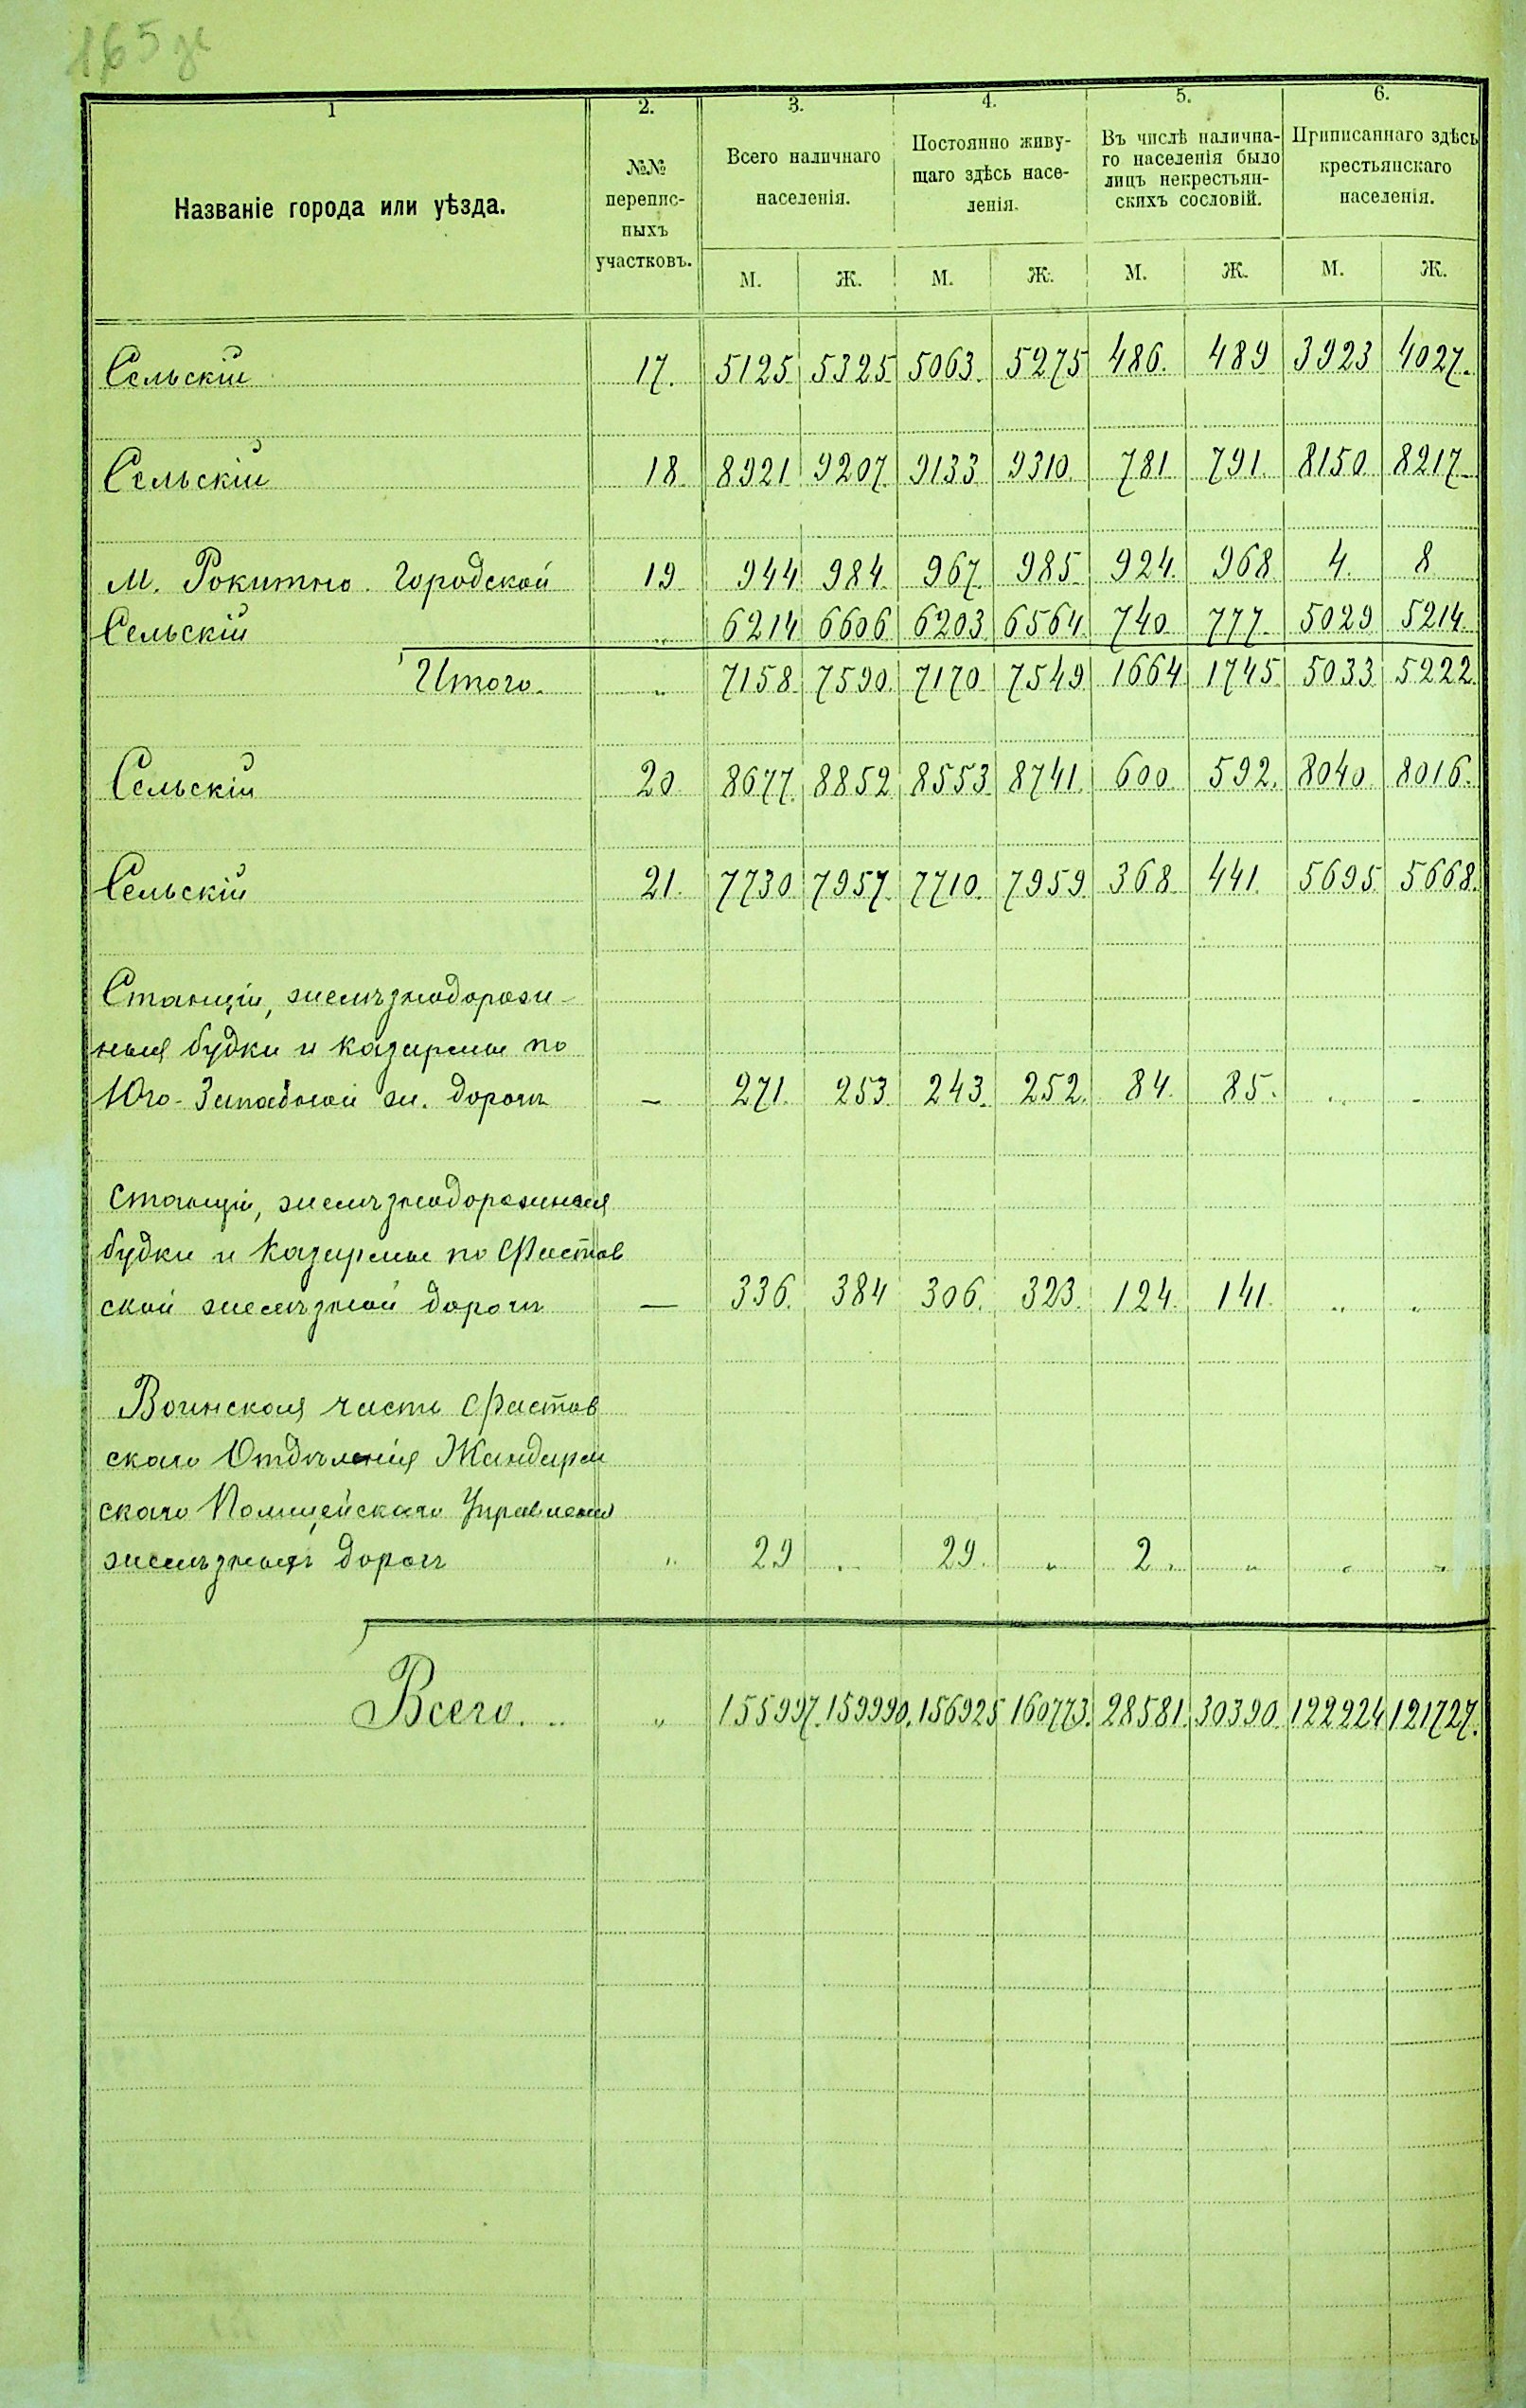 165 зв
1 2. 3. 4. 5. 6.
Названіе города или уѣзда.
№№
перепис-
ныхъ
участковъ.
Всего наличнаго
населенія.
Постоянно живу-
щаго здѣсь насе-
ленія.
Въ числѣ налична-
го населенія было
лицъ некрестьян-
скихъ сословій.
Приписаннаго здѣсь
крестьянскаго
населенія.
М. Ж. М. Ж. М. Ж. М. Ж.
Сельскій 17. 5125 5325 5063. 5275 486. 489 3923 4027.
Сельскій 18. 8921 9207. 9133 9310. 781 791. 8150. 8217
М. Рокитно. Городской 19 944 984. 967. 985. 924. 968 4. 8
Сельскій „ 6214 6606 6203 6564. 740. 777. 5029 5214.
Итого. „ 7158. 7590. 7170. 7549. 1664 1745. 5033. 5222.
Сельскій 20. 8677. 8852 8553. 8741. 600. 592. 8040. 8016.
Сельскій 21. 7730 7957. 7710. 7959. 368. 441. 5695. 5668.
Станціи, желѣзнодорож-
ныя будки и казармы по
Юго-Западной ж. дорогѣ — 271. 253. 243. 252. 84. 85. „ „
Станціи, желѣзнодорожныя
будки и казармы по Фастов
ской желѣзной дорогѣ — 336. 384 306. 323. 124. 141. „ „
Воинская часть Фастов
скаго Отдѣленія Жандарм
скаго Полицейскаго Управленія
желѣзныхъ дорогъ „ 29 „ 29. „ 2. „ „ „
Всего. .. „ 155997. 159990. 156925 160773. 28581. 30390. 122924 121727.